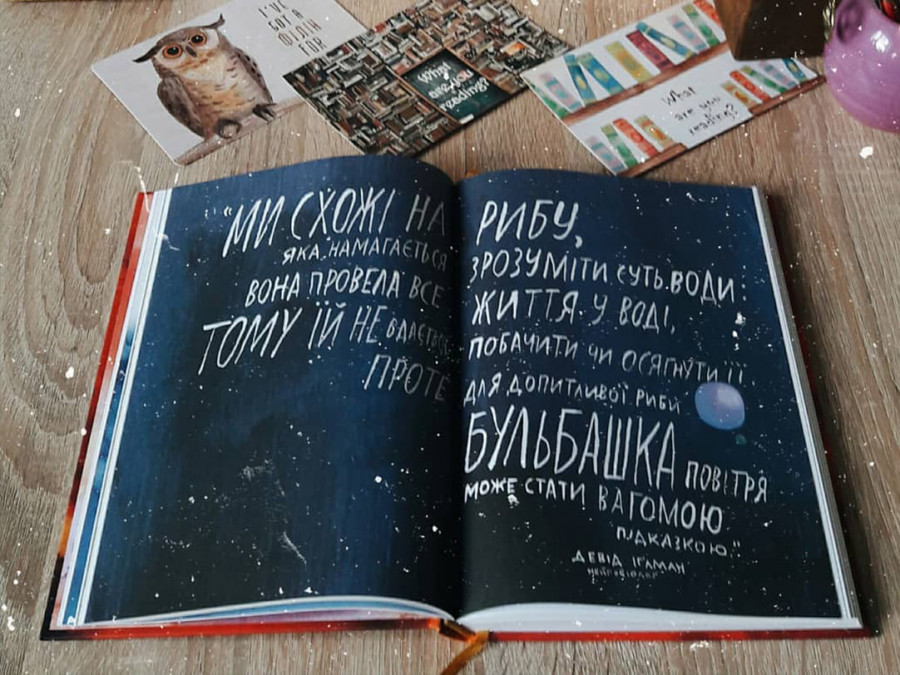 I'VE
GOT A
ФІЛІН
What
are you
reading?
What
are you
reading?
"МИ СХОЖІ НА РИБУ,
ЯКА НАМАГАЄТЬСЯ ЗРОЗУМІТИ СУТЬ ВОДИ:
ВОНА ПРОВЕЛА ВСЕ ЖИТТЯ У ВОДІ,
ТОМУ ЇЙ НЕ ВДАЄТЬСЯ ПОБАЧИТИ ЧИ ОСЯГНУТИ ЇЇ.
ПРОТЕ ДЛЯ ДОПИТЛИВОЇ РИБИ
БУЛЬБАШКА ПОВІТРЯ
МОЖЕ СТАТИ ВАГОМОЮ
ПІДКАЗКОЮ".
ДЕВІД ІҐЛМАН
НЕЙРОБІОЛОГ